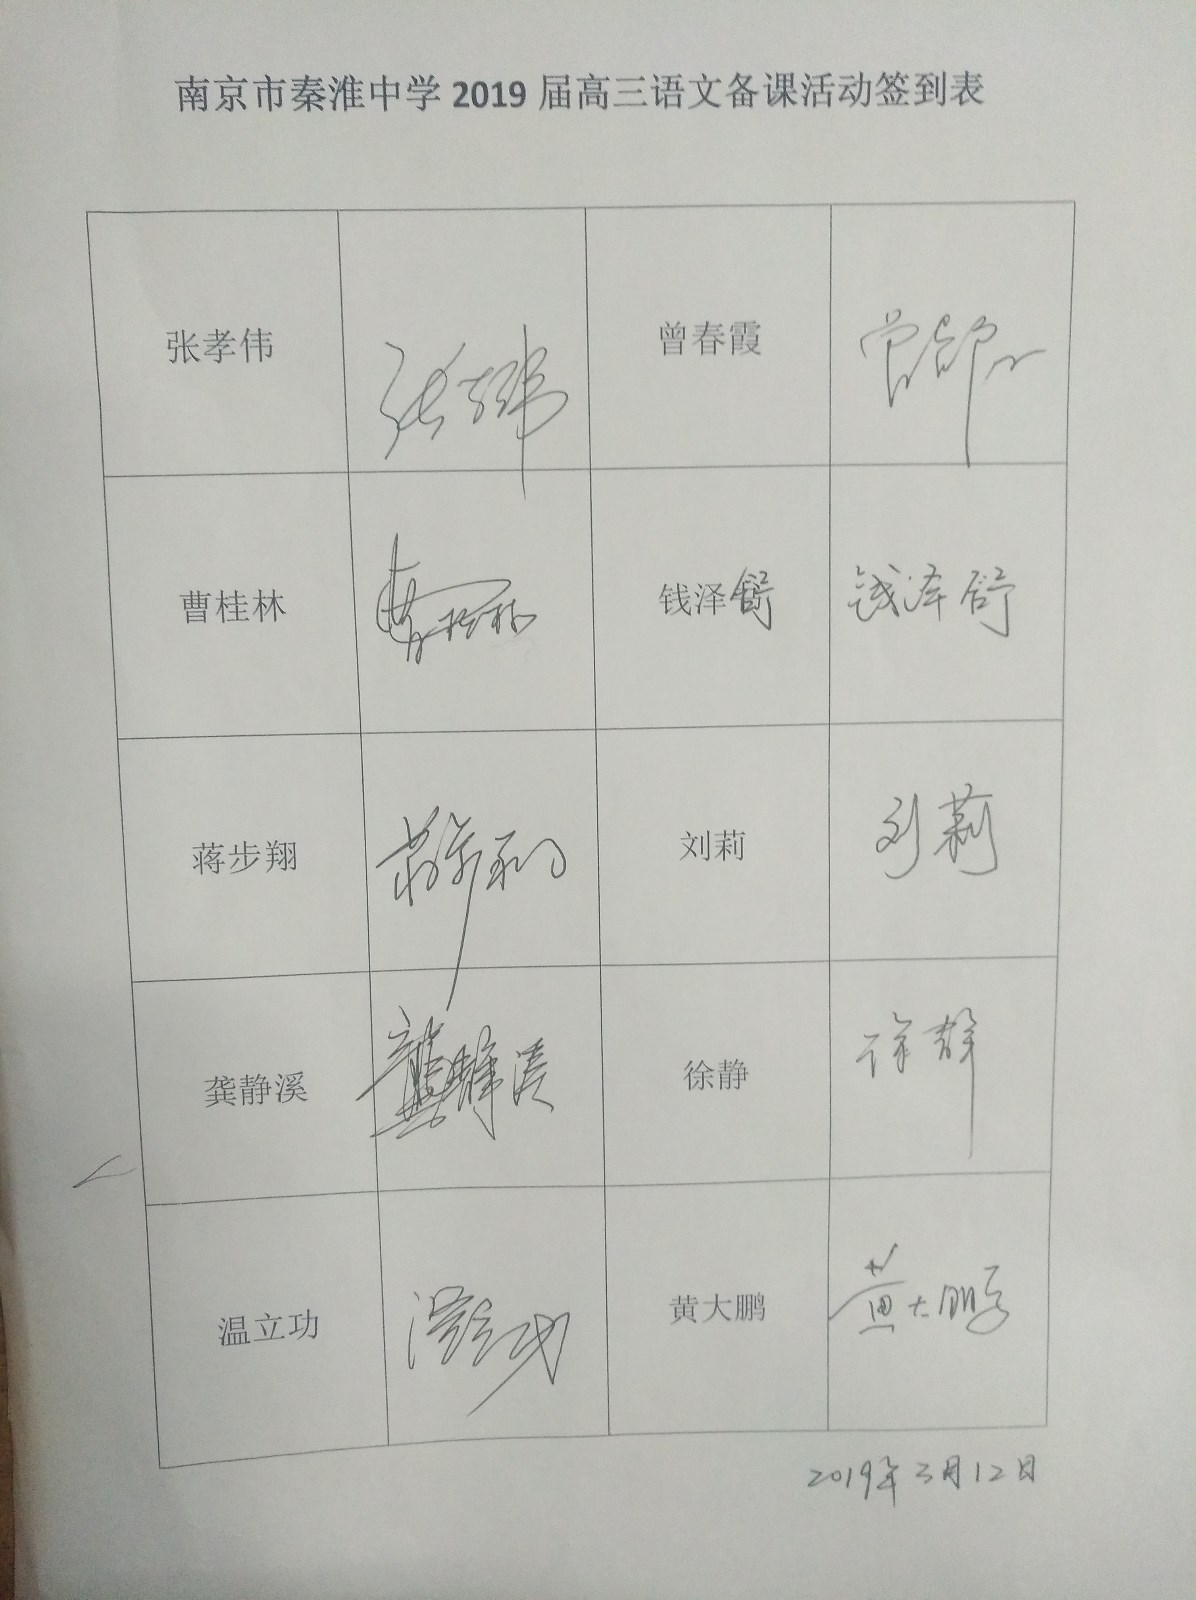 南京市秦淮中学 2019 届高三语文备课活动签到表
张孝伟 张孝伟 曾春霞
曹桂林 曹桂林 钱泽舒 钱泽舒
蒋步翔 蒋步翔 刘莉 刘莉
龚静溪 龚静溪 徐静 徐静
温立功 温立功 黄大鹏 黄大鹏
2019年3月12日